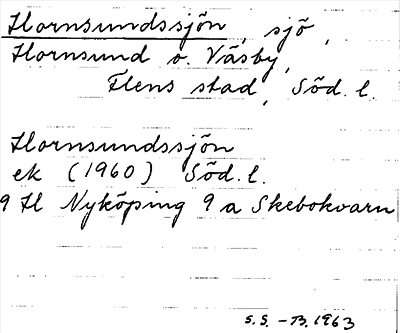 Hornsundssjön, sjö,
Hornsund o. Väsby,
Flens stad, Söd. l.
Hornsundssjön
ek (1960) Söd. l.
9 H Nyköping 9 a Skebokvarn
S.S. – B. 1963